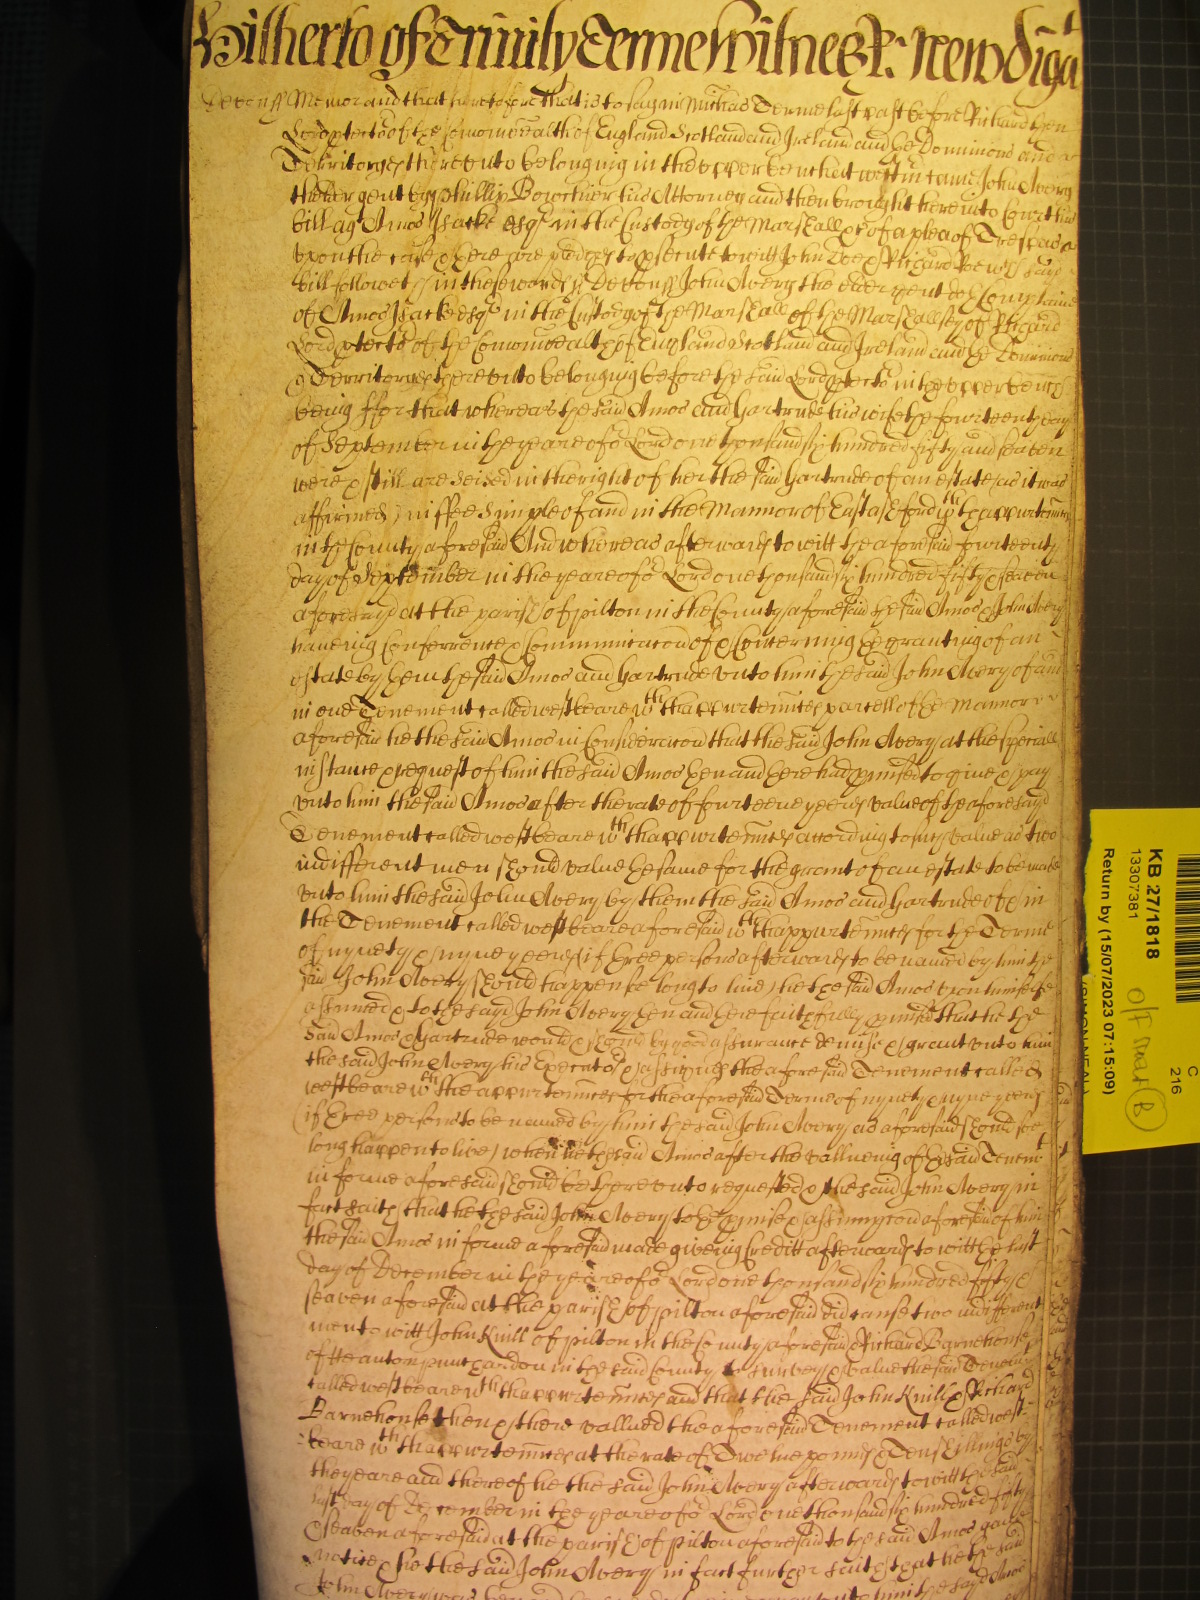 Hitherto of Trinity Terme Witnes R: Newdigat
Devon ss Memorand that heretofore that is to say in Michas Terme last past before Richard then
Lord ptector of the Comonwealth of England Scotland and Ireland and the Dominions and
Territoryes thereunto belonging in the upper bench att westm came John Avery
the yonger gent by Phillip Bowchier his Attorney and then brought here into Court his
bill agt Amos Isacke esqr in the Custody of the Marshall &c of a plea of Trespas
upon the case & there are pledges to psecute to witt John Doe & Richard Roe wch sayd
bill followeth in these words ss Devon ss John Avery the younger gent doth Complaine
of Amos Isacke esqr in the Custody of the Marshall of the Marshallsey of Richard
Lord ptector of the Comonwealth of England Scotland and Ireland and the Dominions
& Territoryes thereunto belonging before the said Lord ptector in the upper bench
being ffor that whereas the said Amos and Hartrude his wife the fourteenth day
of September in the yeare of or Lord one thousand six hundred fifty and seaven
were & still are Seised in the right of her the said Hartrude of an estate (as it was
affirmed) in ffee Simple of and in the Mannor of East Asheford wth thappurtennces
in the County aforesaid And whereas afterwards to witt the aforesaid fourteenth
day of September in the yeare of or Lord one thousand six hundred fifty & seaven
aforesayd at the parish of Pilton in the County aforesaid the said Amos & John Avery
haveing Conferrence & Communicacon of & Concerning the granting of an
estate by them the said Amos and Hartrude unto him the said John Avery of and
in one Tenement called westbeare wth thappurtennces parcell of the Mannor
aforesaid he the said Amos in Consideracon that the said John Avery at the speciall
instance & request of him the said Amos then and there had pmised to give & pay
unto him the said Amos after the rate of fourteene yeeres value of the aforesayd
Tenement called westbeare wth thappurtennces according to such value as two
indifferent men should value the same for the grant of an estate to be made
unto him the said John Avery by them the said Amos and Hartrude of & in
the Tenement called westbeare aforesaid wth thappurtennces for the Terme
of nynety & nyne yeeres (if three persons afterwards to be named by him the
said John Avery should happen soe long to live) he the said Amos upon himselfe
assumed & to the sayd John Avery then and there faithfully pmised that he the
said Amos & Hartrude would & should by good assurance demise & grant unto him
the said John Avery his Executors & assignes the aforesaid Tenement called
westbeare wth the appurtennces for the aforesaid Terme of nynety & nyne yeeres
(if three persons to be named by him the said John Avery as aforesaid should soe
long happen to live) when he the said Amos after the vallueing of the said Tenemt
in forme aforesaid should be thereunto requested & the said John Avery in
fact saith that he the said John Avery to the pmise & assumpcon aforesaid of him
the said Amos in forme aforesaid made giveing Creditt afterwards to witt the last
day of December in the yeare of or Lord one thousand six hundred fifty &
seaven aforesaid at the parish of Pilton aforesaid did cause two indifferent
men to witt John Knill of Pilton in the County aforesaid & Richard Barnehouse
of Heanton punchardon in the said County to survey & value the said Tenemt
called westbeare wth thappurtennces and that the said John Knill & Richard
Barnehouse then & there vallued the aforesaid Tenement called west-
beare wth thappurtennces at the rate of Twelve pounds & Ten shillings by
the yeare and thereof he the said John Avery afterwards to witt the said
last day of December in the yeare of or Lord one thousand six hundred fifty
& seaven aforesaid at the parish of Pilton aforesaid to the said Amos gave
notice & he the said John Avery in fact further saith that he the said
John Avery
KB 27/1818
13307381
Return by (15/07/2023 07:15:09)
C
216